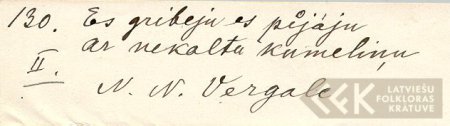 130. Es gribēju es pļāju
ar nekaltu kumeliņu
II.
N. N. Vērgale
LATVIEŠU
FOLKLORAS
KRĀTUVE